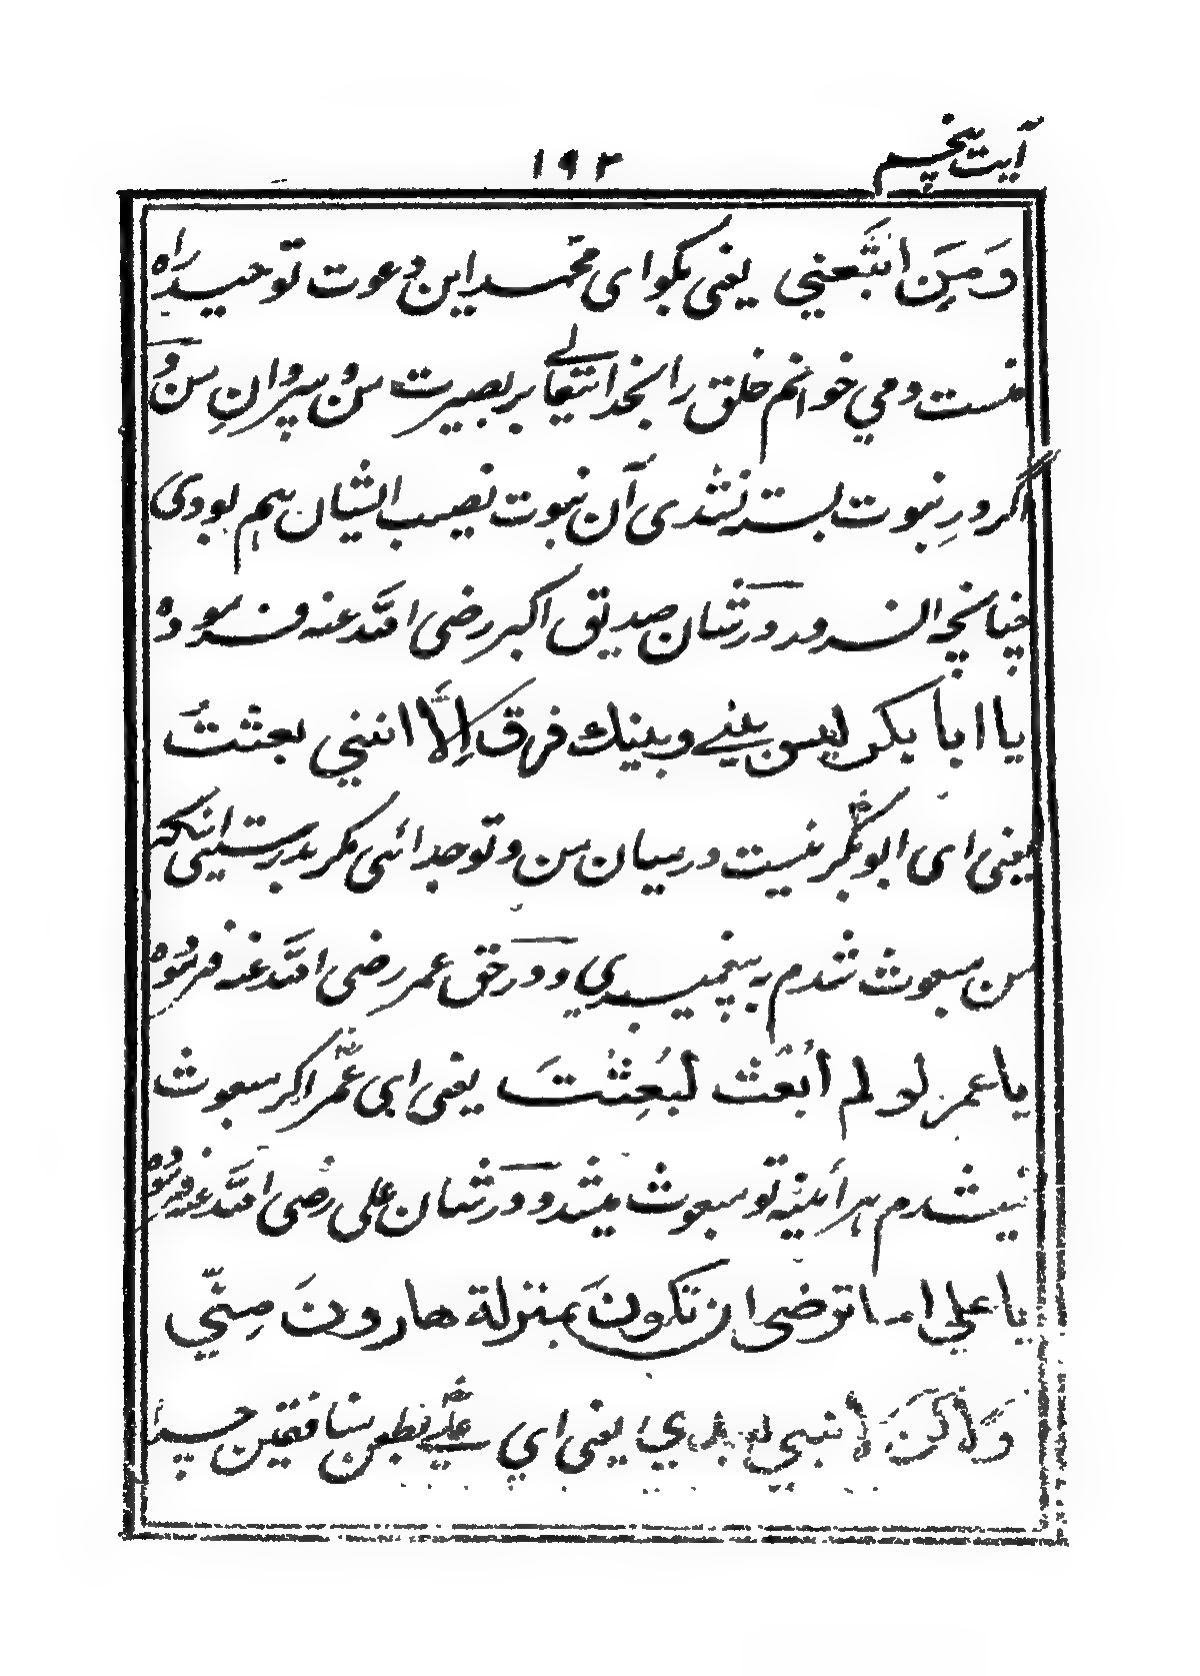 آیت پنجم
۱۹۲
وَمَنِ اتَّبَعَنِي یعنی بگو ای محمد این دعوت توحید راه
منست و می خوانم خلق را بخدا تیعالے بر بصیرت من و پیروانِ من و
اگر درِ نبوت بسته نشدی آن نبوت نصیب ایشان هم بودی
چنانچه السرور در شان صدیق اکبر رضی الله عنه فرموده
یا ابا بكر ليس بيني وبينك فرق إلّا انني بعثتُ
یعنی ای ابوبکر نیست درمیان من و تو جدائی مگر بدرستی انکه
من مبعوث شدم به پیغمبری و در حق عمر رضی الله عنه فرموده
يا عمر لو لم اُبعَث لَبُعِثْتَ یعنی ای عمر اگر مبعوث
نمیشدم هر آئینه تو مبعوث میشد و در شان علی رضی الله عنه فرموده
يا علي اما ترضى ان تكونَ بمنزلة هارونَ مِنّي
وَلٰكن لا نبي بعدي یعنی ای علی بطعن منافقین چرا